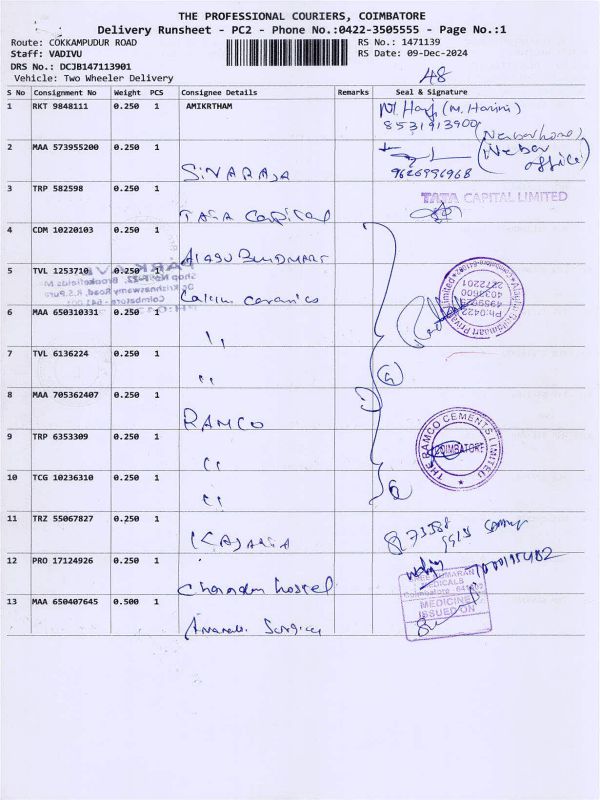 THE PROFESSIONAL COURIERS, COIMBATORE
Delivery Runsheet - PC2 - Phone No.:0422-3505555 - Page No.:1
Route: COKKAMPUDUR ROAD RS No.: 1471139
Staff: VADIVU RS Date: 09-Dec-2024
DRS No.: DCJB147113901
Vehicle: Two Wheeler Delivery 48
S No Consignment No Weight PCS Consignee Details Remarks Seal & Signature
1 RKT 9848111 0.250 1 AMIKRTHAM (M. Harini)
8531913900
2 MAA 573955200 0.250 1 SIVARAJA office)
9626996968
3 TRP 582598 0.250 1 TATA Capital TATA CAPITAL LIMITED
4 CDM 10220103 0.250 1
5 TVL 1253710 0.250 1 Calcium ceramics
6 MAA 650310331 0.250 1 ,,
7 TVL 6136224 0.250 1 ,,
8 MAA 705362407 0.250 1 RAMCO
9 TRP 6353309 0.250 1 ,,
THE RAMCO CEMENTS LIMITED
COIMBATORE
10 TCG 10236310 0.250 1 ,,
11 TRZ 55067827 0.250 1 KAJARIA
12 PRO 17124926 0.250 1 hostel
MEDICALS
MEDICINE
ISSUED ON
13 MAA 650407645 0.500 1